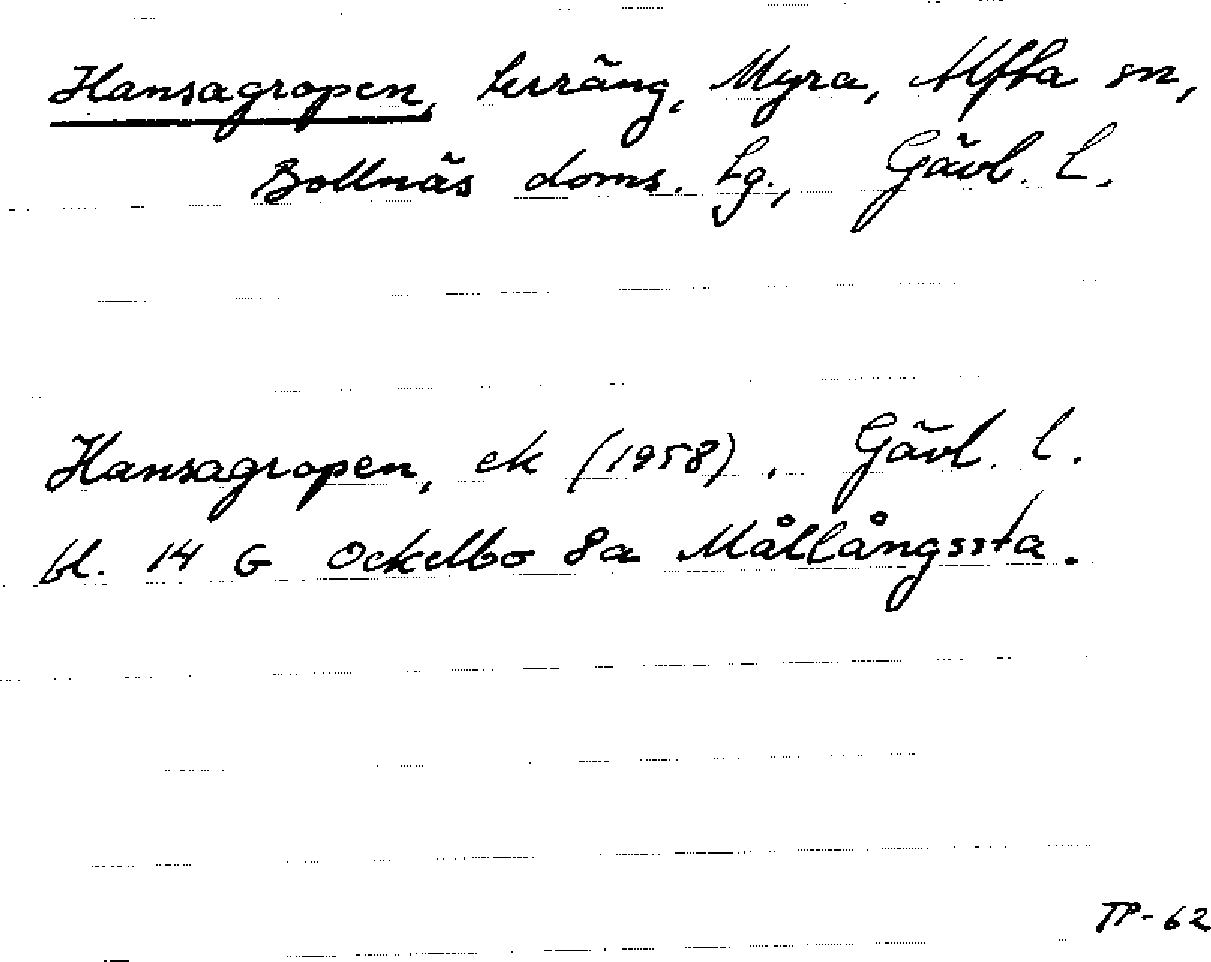 Hansagropen, terräng, Myra, Alfta sn,
Bollnäs doms. tg., Gävl. l.
Hansagropen, ek (1958). Gävl. l.
bl. 14 G Ockelbo 8a Mållångssta.
TP-62